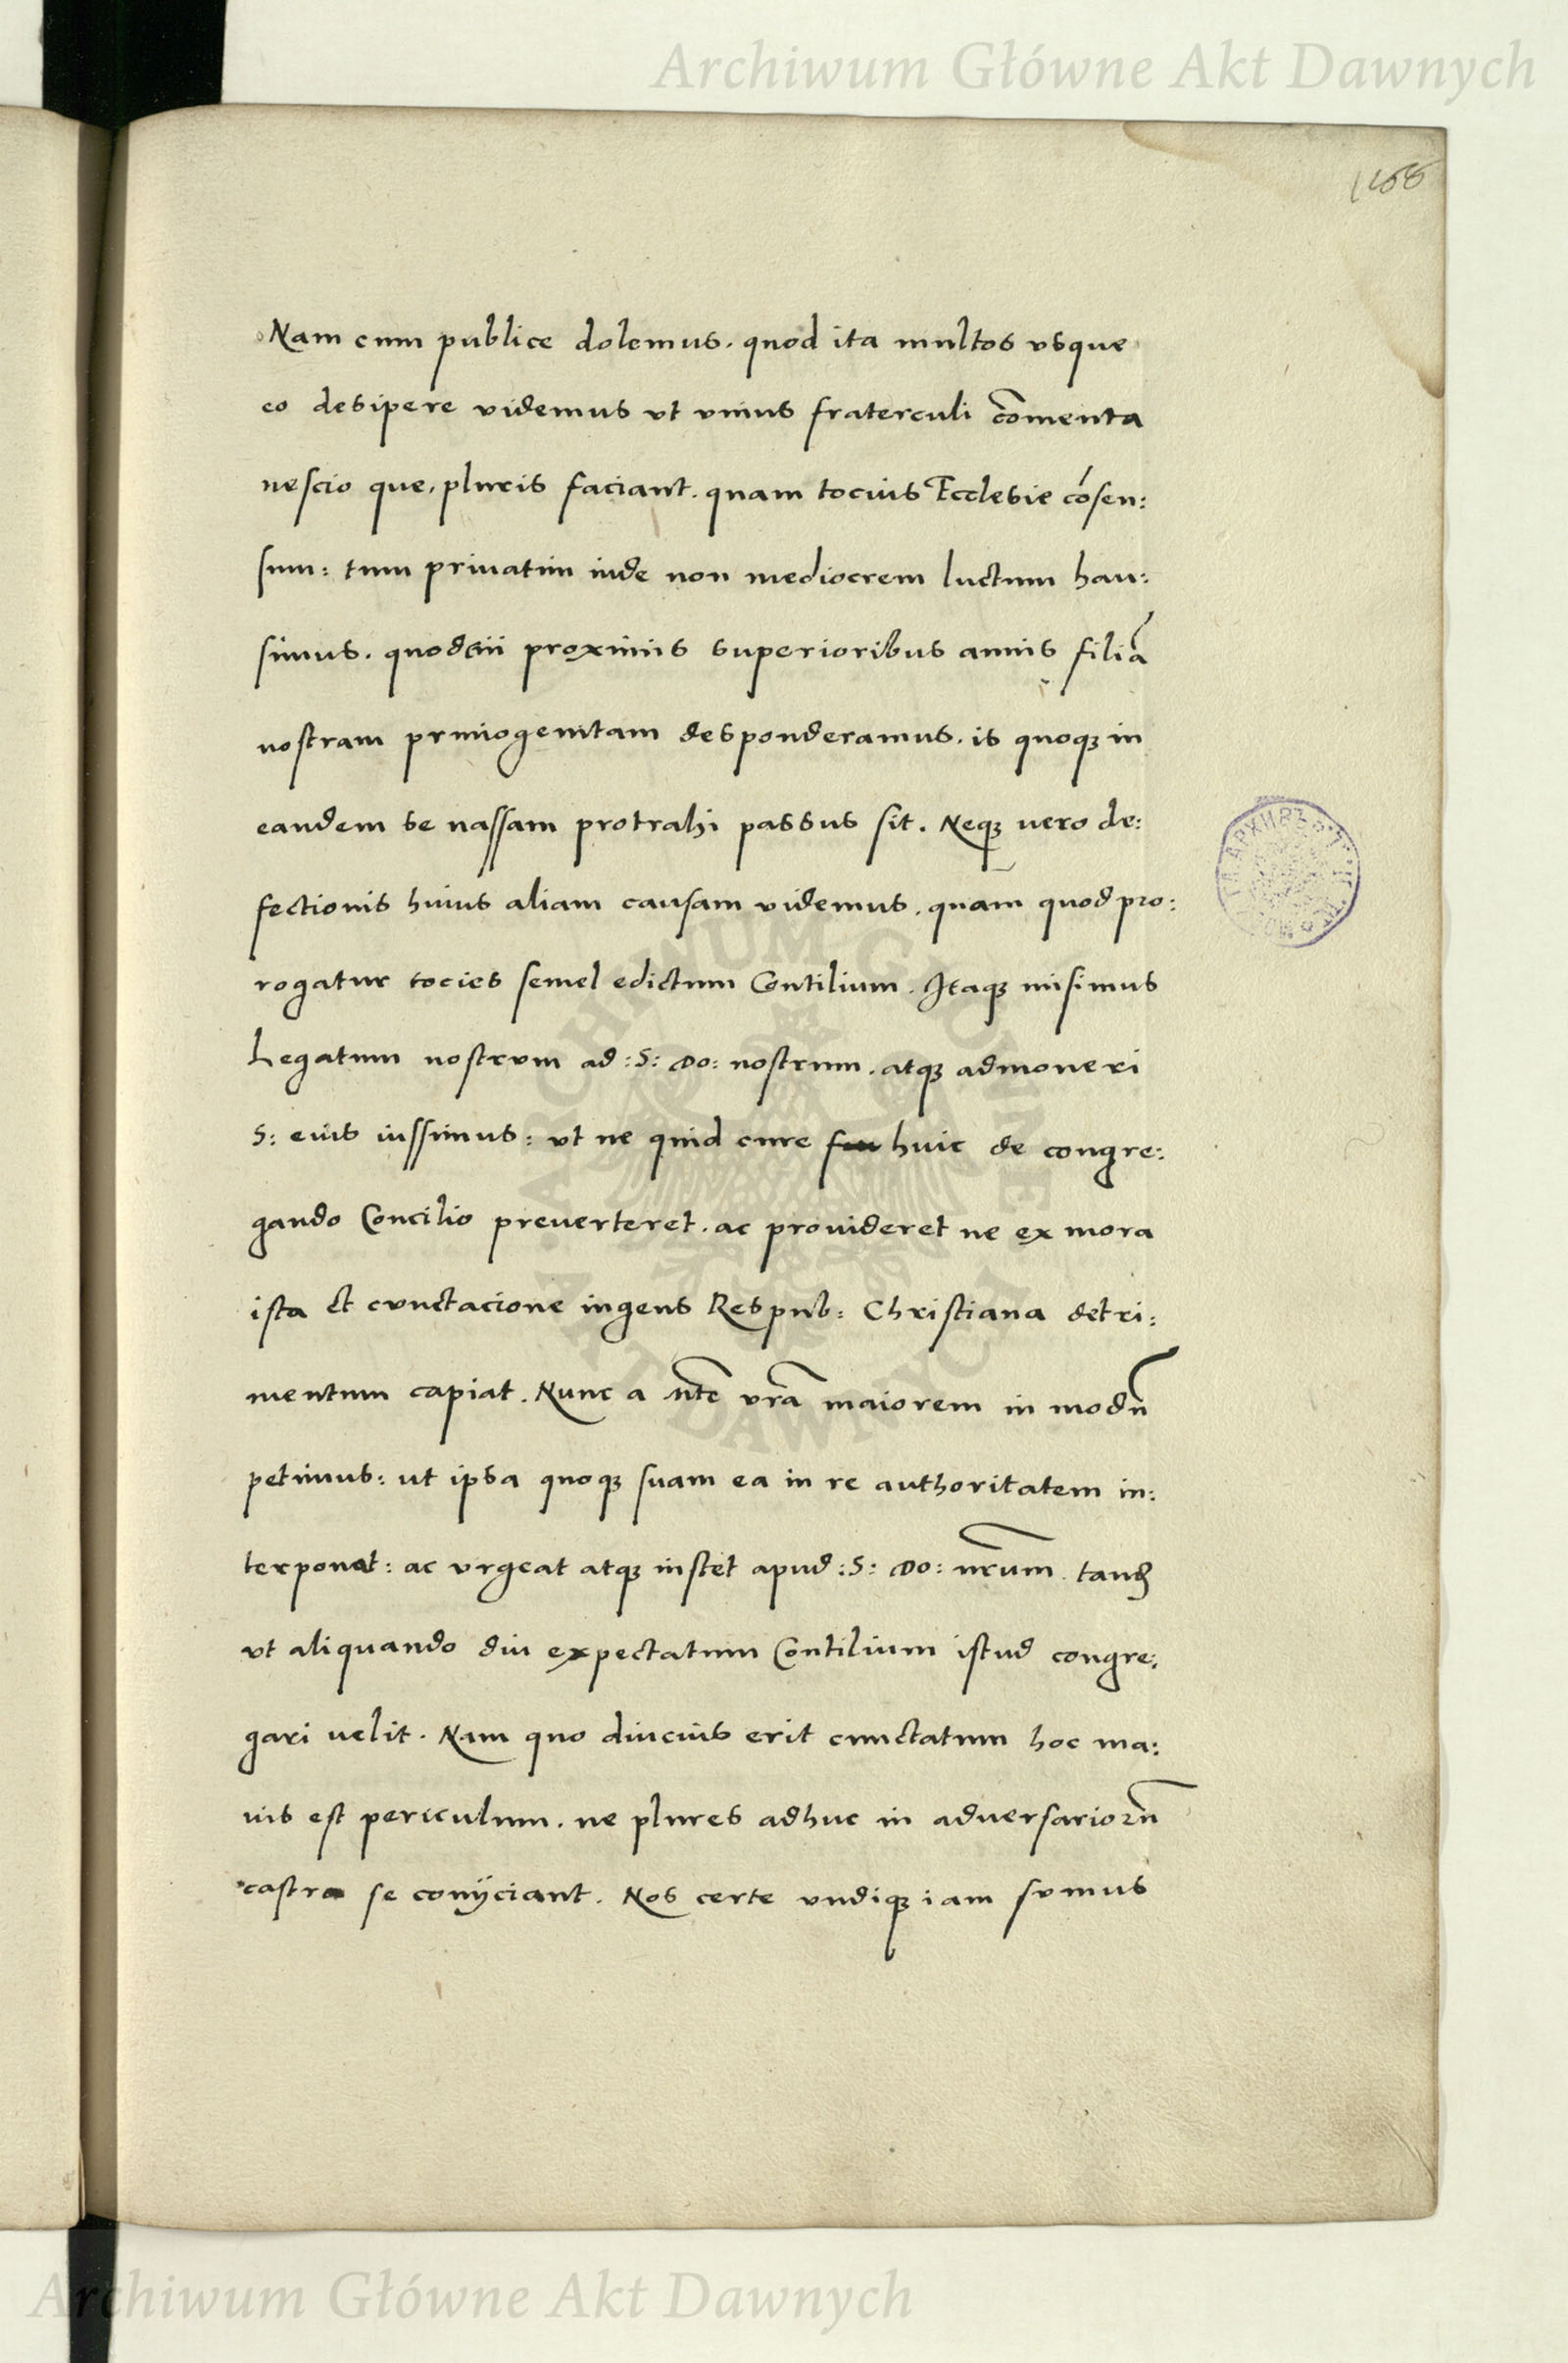 Archiwum Główne Akt Dawnych
Nam cum publice dolemus. quod ita multos vsque
eo desipere videmus vt vnius fraterculi cōmenta
nescio que, pluris faciant. quam tocius Ecclesie cōsen:
sum: tum priuatim inde non mediocrem luctum hau:
simus. quod cui proximis superioribus annis filiā
nostram primogenitam desponderamus. is quoqꝫ in
eandem se nassam protrahi passus sit. Neqꝫ uero de:
fectionis huius aliam causam videmus. quam quod pro:
rogatur tocies semel edictum Contilium. Itaqꝫ misimus
Legatum nostrum ad :S: Do: nostrum. atqꝫ admoneri
S: eius iussimus: vt ne quid cure huic de congre:
gando Concilio preuerteret. ac prouideret ne ex mora
ista et cunctacione ingens Respub: Christiana detri:
mentum capiat. Nunc a vrā maiorem in modū
petimus: ut ipsa quoqꝫ suam ea in re authoritatem in:
terponat: ac vrgeat atqꝫ instet apud :S: Do: nr̄um. tandē
vt aliquando diu expectatum Contilium istud congre:
gari uelit. Nam quo diucius erit cunctatum hoc ma:
ius est periculum. ne plures adhuc in aduersarioꝛū
castra se conijciant. Nos certe vndiqꝫ iam sumus
ARCHIWUM GŁÓWNE
AKT DAWNYCH
Archiwum Główne Akt Dawnych